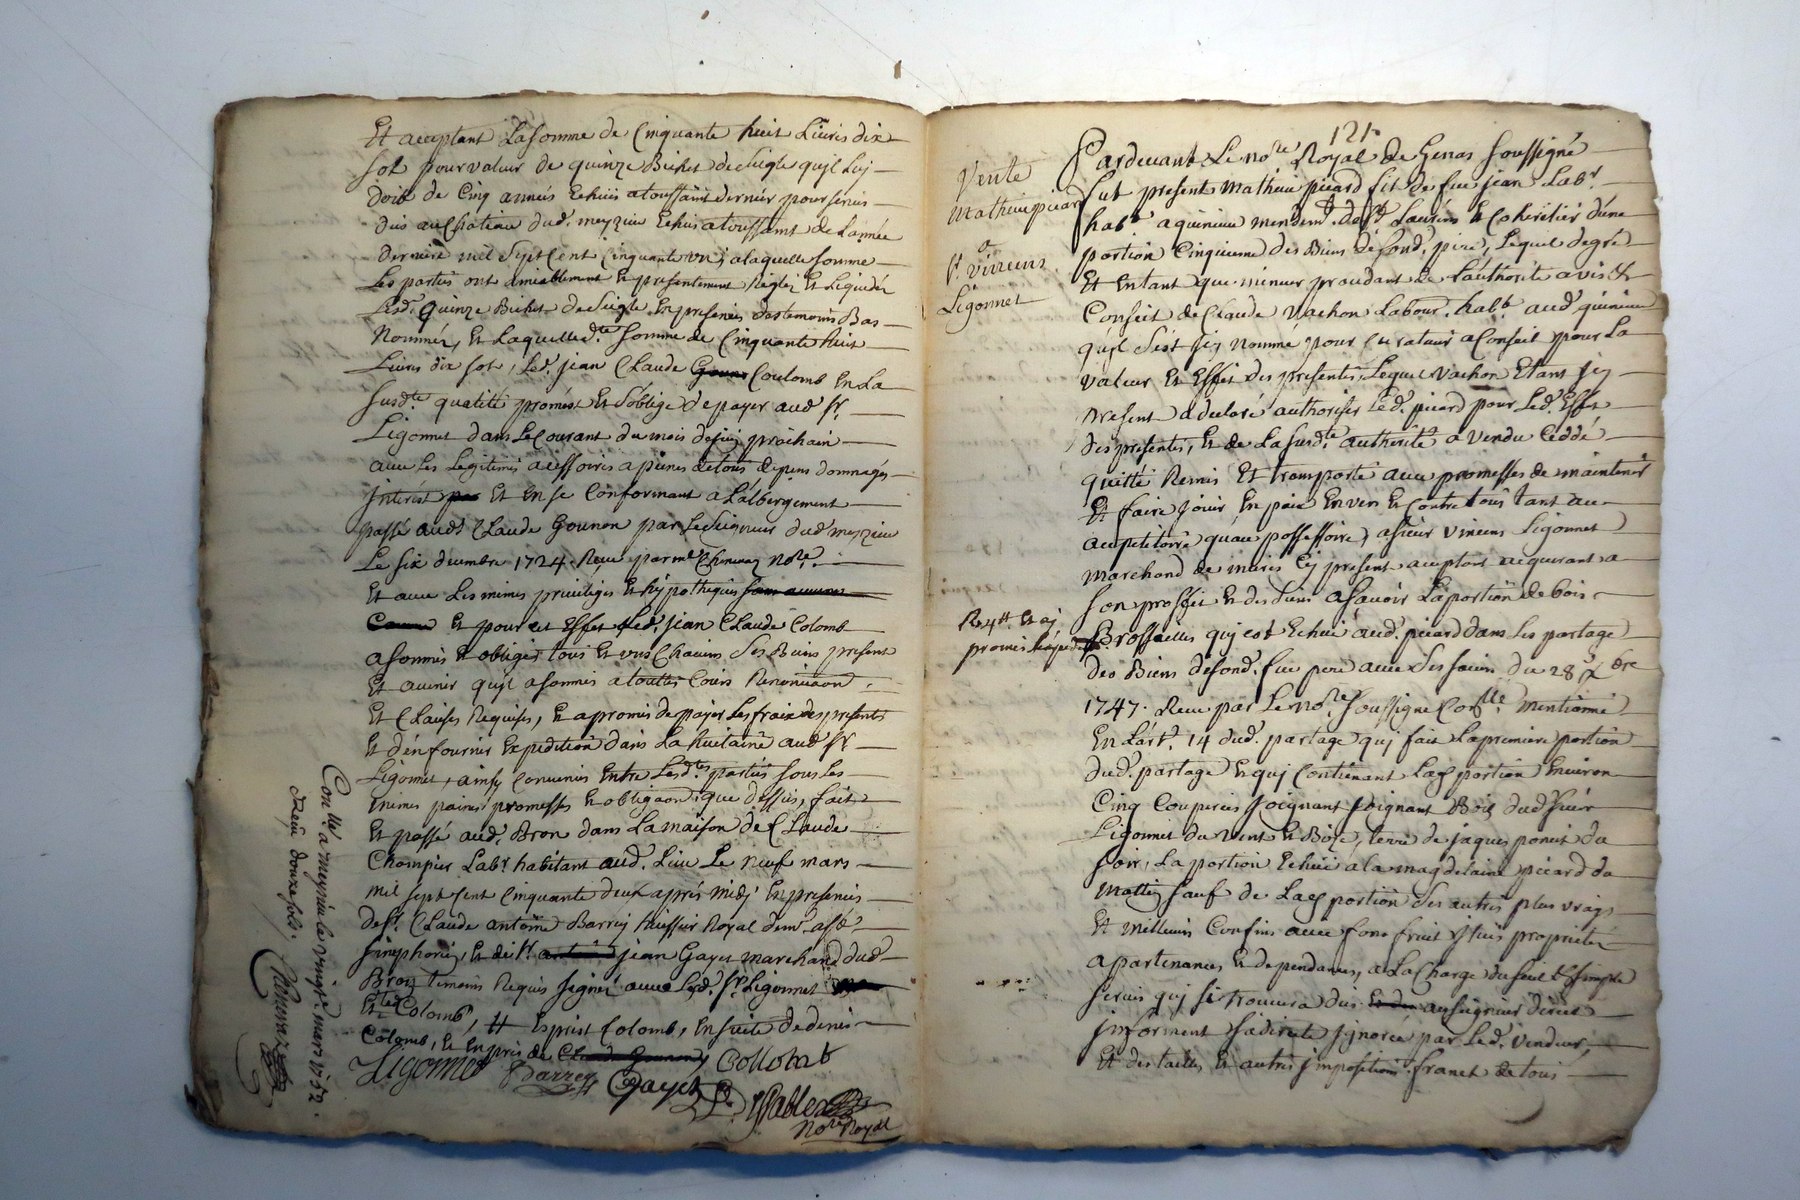 Et acceptant La somme de Cinquante huit Livres dix
sol pour valeur de quinze Bichet de seigle qu'jl Luy
doit de Cinq années Echuës a toussaint dernier pour servis
dus au Chateau dud. meyzieu Echus a toussaint de L'année
derniere mil sept Cent Cinquante un, a laquelle somme
Les partiës ont amiablement Et presentement Reglez Et Liquidéz
Lesd. quinze Bichet de seigle En presence des temoins Bas
Nommés, Et Laquelle d.te somme de Cinquante huit
Livres dix sol, Led. jean Claude Coulomb En La
susd.te qualitté promest Et s'oblige de payer aud. Sr.
Ligonnet dans Le Courant du mois de juin prochain
avec Les Legitimes accessoires a peines de tous depens dommages
jnterest Et En se Conformant a L'albergement
passé aud. Claude Gounon par Le seigneur dud meyzieu
Le six decembre 1724. Reçu par me Chinay No.re
Et avec Les mêmes privileges Et hypotheques
Et pour cet Effet Led. jean Claude Colomb
a soumis Et obligé tous Et uns Chacuns ses Biens present
Et avenir qu'jl a soumis a touttes Cours Renonciaon
Et Clauses Requises, Et a promis de payer Les fraix des presentes
Et d'en fournir Expedition dans La huitaine aud. Sr.
Ligonnet, ainsy Convenus Entre Lesd.tes partiës sous Les
mêmes peines promesses Et obligaons que dessus, fait
Et passé aud. Bron dans La maison de Claude
Champier Lab.r habitant aud. Lieu Le neuf mars
mil sept Cent Cinquante deux après midy En presences
de Sr. Claude antoine Barrey huissier Royal dem.t a St.
simphorien, Et de Sr. jean Gayet marchand dud
Bron temoins Requis signéz avec Led. Sr. Ligonnet
Et led Colomb,
Colomb,
Ligonnet Barrey Gayet Collomb
Nore Royal
Con.llé a Meyzieu le vingt mars 1752.
Reçu douze sols.
121.
Vente
Mathieu picard
a
Sr. vincens
Ligonnet
Pardevant Le No.re Royal de Genas soussigné
fut present Mathieu picard fils de feu jean Lab.r
hab.t a quinieu mendem.t de St. Laurens & Coheritier d'une
portion Cinquieme des Biens de sond. pere, Lequel de gré
Et En tant que mineur procedant de L'authorité avis &
Conseil de Claude vachon Labour. hab.t aud. quinieu
qu'jl s'est jcy nommé pour Curateur a Conseil pour La
valeur Et Effet des presentes, Lequel vachon Etant jcy
present a declaré authoriser Led. picard pour Led. Effet
des presentes, Et de La susd.te authorité a vendu Ceddé
quitté Remis Et transporté avec promesses de maintenir
Et faire jouir En paix Envers Et Contre tous tant au
au petitoire qu'au possessoire, a sieur vincens Ligonnet
marchand de jcy present acceptant acquerant a
son proffit Et des siens a savoir La portion de bois
Brossailles quj est Echuë aud. picard dans Les partage
des Biens de sond. feu pere avec ses soeurs du 28e xbre
1747. Recu par Le No.re soussigné Con.llé Mentionné
En L'art. 14 dud. partage quj fait La premiere portion
dud. partage Et quj Contenant La d. portion Environ
Cinq Couperëes joignant Bois dud sieur
Ligonnet du vent Et Bize, terre de jaques du
soir, La portion Echuë a La magdelaine picard du
Mattin sauf de La d. portion ses autres plus vrays
Et meilleurs Confins avec fons fruit proprietés
apartenances Et dependances, a La Charge du seul & simple
servis quj se trouvera dus au seigneur direct
jnforment sa directe jgnorée par Led. vendeur,
Et des tailles Et autres jmpositions franct de tous
Req.tt Et aj
promis